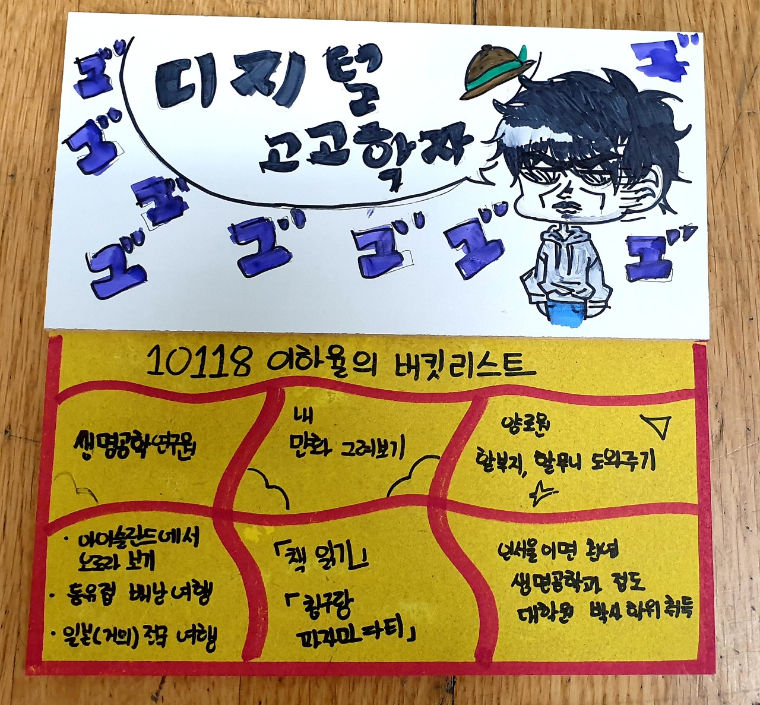 ゴ
ゴ
ゴ
ゴ
디지털
고고학자
ゴ
ゴ
ゴ
ゴ
ゴ
10118 이하율의 버킷리스트
생명공학연구원
내
만화 그려보기
양로원
할부지, 할무니 도와주기
· 아이슬란드에서
오로라 보기
· 동유럽 배낭여행
· 일본(거의) 전국 여행
「책 읽기」
「친구랑
파자마 파티」
인서울이면 환영
생명공학과
대학원 박사 학위 취득